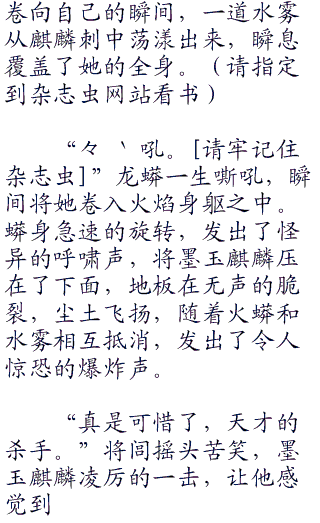 卷向自己的瞬间，一道水雾
从麒麟刺中荡漾出来，瞬息
覆盖了她的全身。（请指定
到杂志虫网站看书）
“々 丶吼。[请牢记住
杂志虫]”龙蟒一生嘶吼，瞬
间将她卷入火焰身躯之中。
蟒身急速的旋转，发出了怪
异的呼啸声，将墨玉麒麟压
在了下面，地板在无声的脆
裂，尘土飞扬，随着火蟒和
水雾相互抵消，发出了令人
惊恐的爆炸声。
“真是可惜了，天才的
杀手。”将闾摇头苦笑，墨
玉麒麟凌厉的一击，让他感
觉到